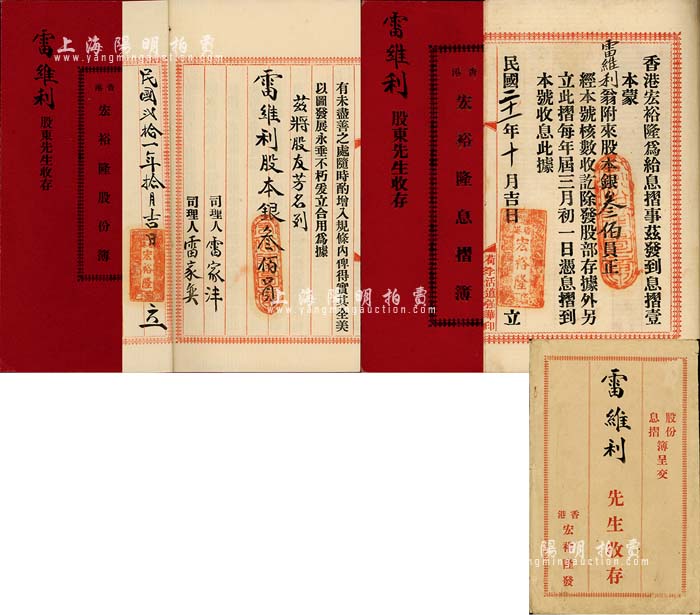 雷維利 股東先生收存
香港 宏裕隆股份簿
民國弍拾一年拾月吉日 立
宏裕隆
有未盡善之處隨時酌增入規條內俾得實其全美
以圖發展永垂不朽爰立合用爲據
茲將股友芳名列
雷維利股本銀叁佰員
司理人 雷家沣
司理人 雷家奐
雷維利 股東先生收存
香港 宏裕隆息摺簿
香港宏裕隆爲給息摺事茲發到息摺壹
本蒙
雷維利翁附來股本銀叁佰員正
經本號核數收訖除發股部存據外另
立此摺每年屆三月初一日憑息摺到
本號收息此據
民國二十一年十月吉日 立
宏裕隆
股份簿
息摺簿呈交
雷維利 先生收存
香港 宏裕隆發
上海陽明拍賣
www.yangmingauction.com
上海陽明拍賣
www.yangmingauction.com